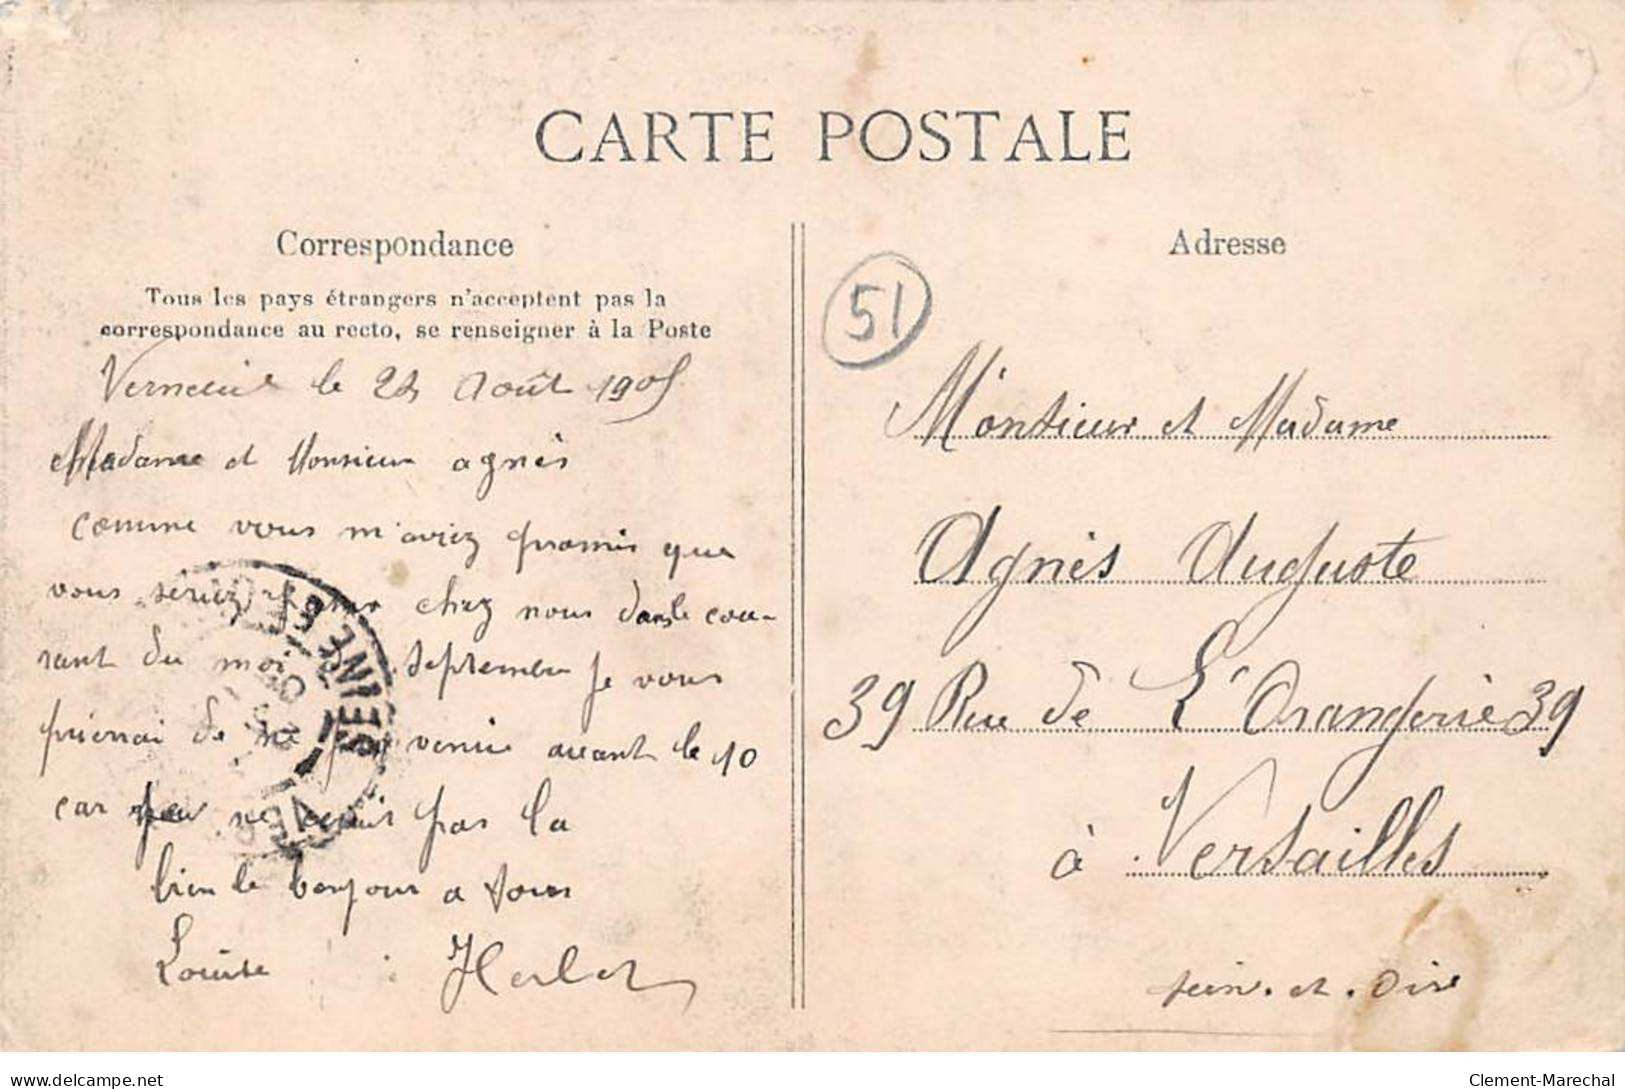 CARTE POSTALE
Correspondance
Tous les pays étrangers n'acceptent pas la
correspondance au recto, se renseigner à la Poste
Verneuil le 22 Août 1905
Madame et Monsieur agnès
comme vous m'aviez promis que
vous seriez chez nous dans le cou-
rant du moi septembre je vous
prierrai de ne pas venir avant le 10
car je ne serais pas la
bien le bonjour a tous
Louise
Adresse
51
Monsieur et Madame
Agnès Auguste
39 Rue de L'Orangerie 39
à Versailles
Sein. et. Oise
SEINE ET O
Clement-Marechal
delcampe.net